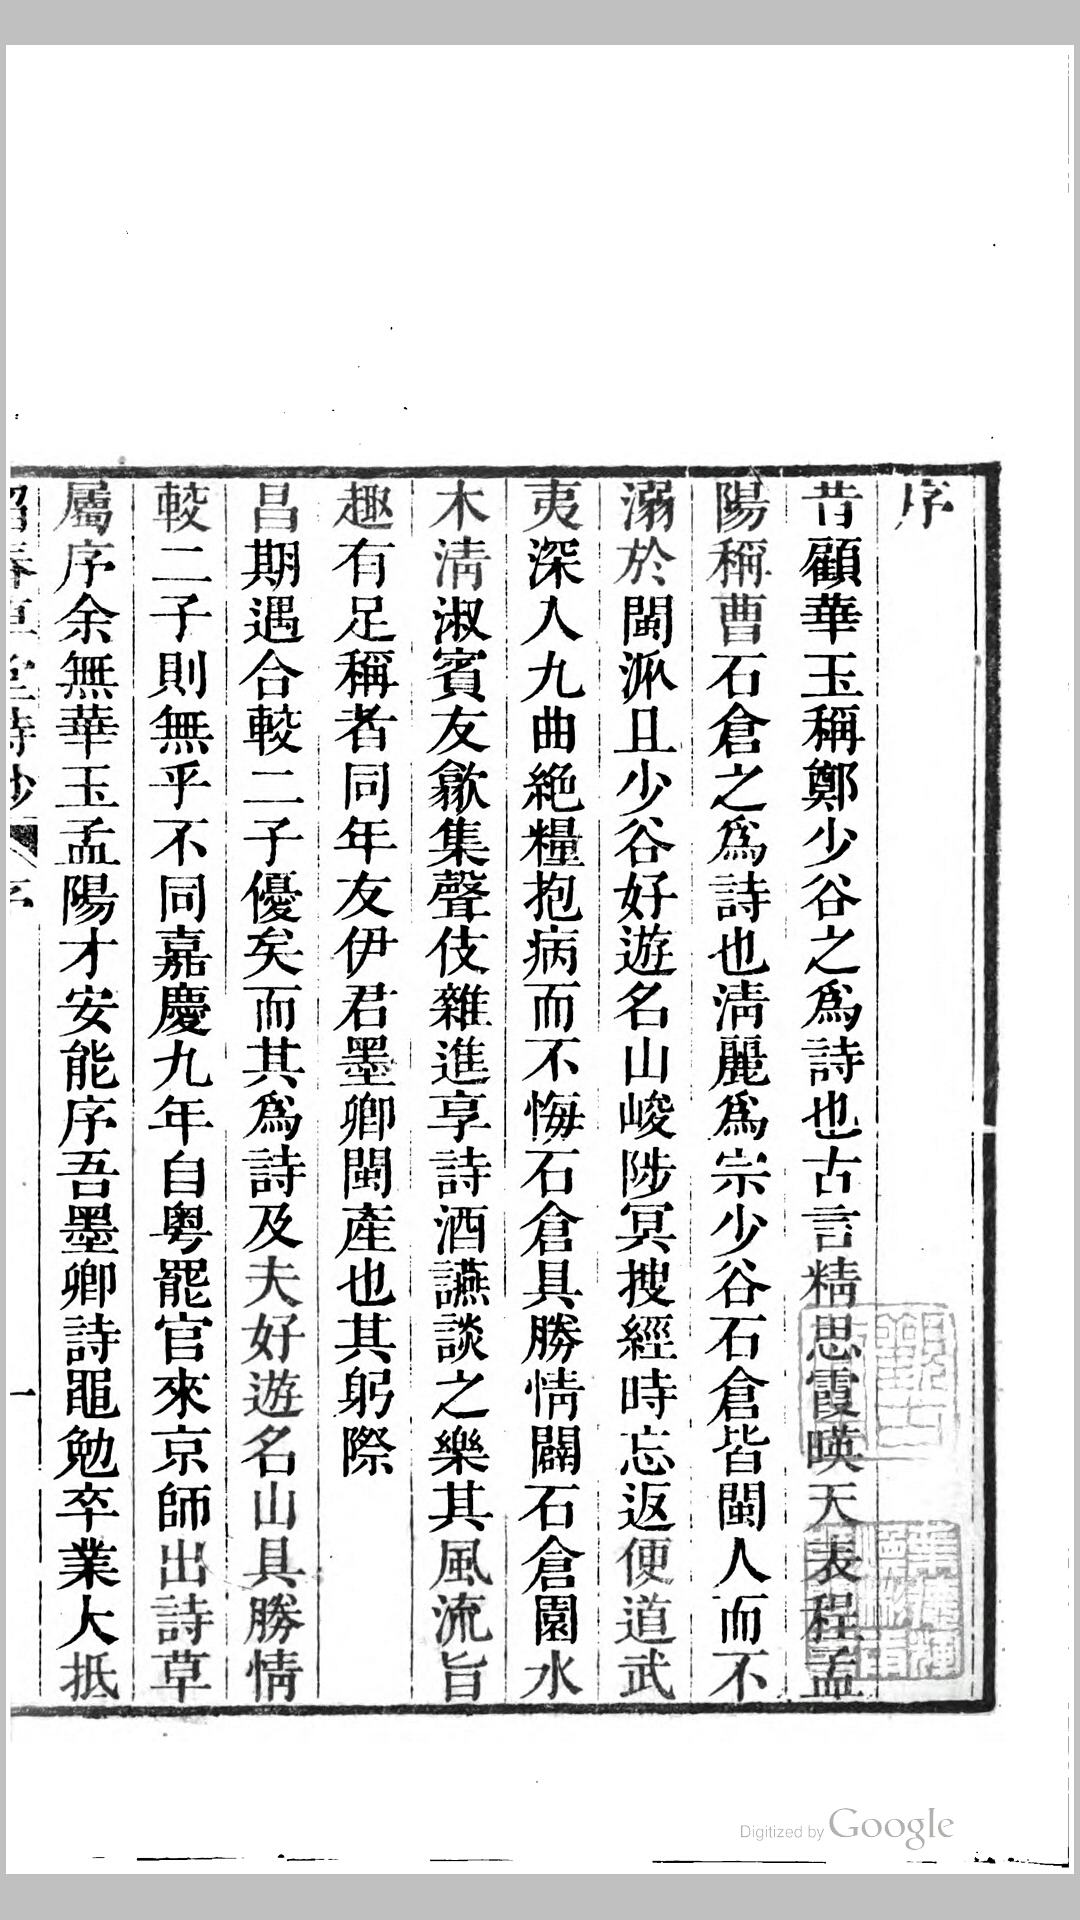 序
昔顧華玉稱鄭少谷之爲詩也古言精思霞暎天表程孟
陽稱曹石倉之爲詩也淸麗爲宗少谷石倉皆閩人而不
溺於閩派且少谷好遊名山峻陟冥搜經時忘返便道武
夷深入九曲絶糧抱病而不悔石倉具勝情闢石倉園水
木淸淑賓友歙集聲伎雜進享詩酒讌談之樂其風流旨
趣有足稱者同年友伊君墨卿閩產也其躬際
昌期遇合較二子優矣而其爲詩及夫好遊名山具勝情
較二子則無乎不同嘉慶九年自粤罷官來京師出詩草
屬序余無華玉孟陽才安能序吾墨卿詩黽勉卒業大抵
留春草堂詩鈔 序 一
Digitized by Google